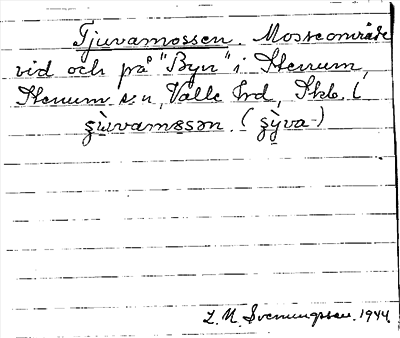 Tjuvamossen. Mosseområde
vid och på "Byn" i Stenum,
Stenum s:n, Valle hd, Skb. l
ʂùvamɞsən. (ʂỳva-)
L. M. Svenungsson. 1944